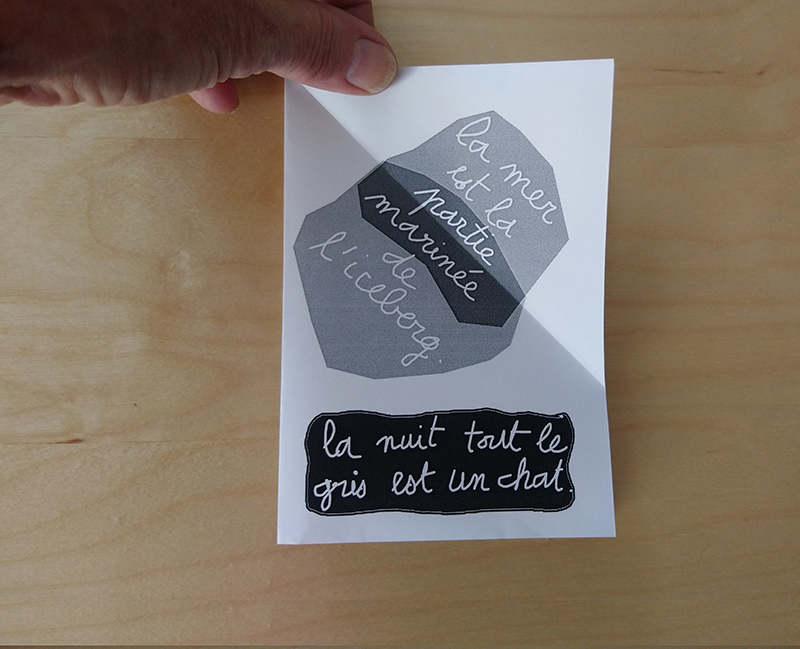 la mer
est la
partie
marinée
de
l'iceberg.
la nuit tout le
gris est un chat.